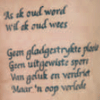 As ek oud word
Wil ek oud wees
Geen gladgestrykte plooi
Geen uitgewiste spore
Van geluk en verdriet
Maar 'n oop verlede